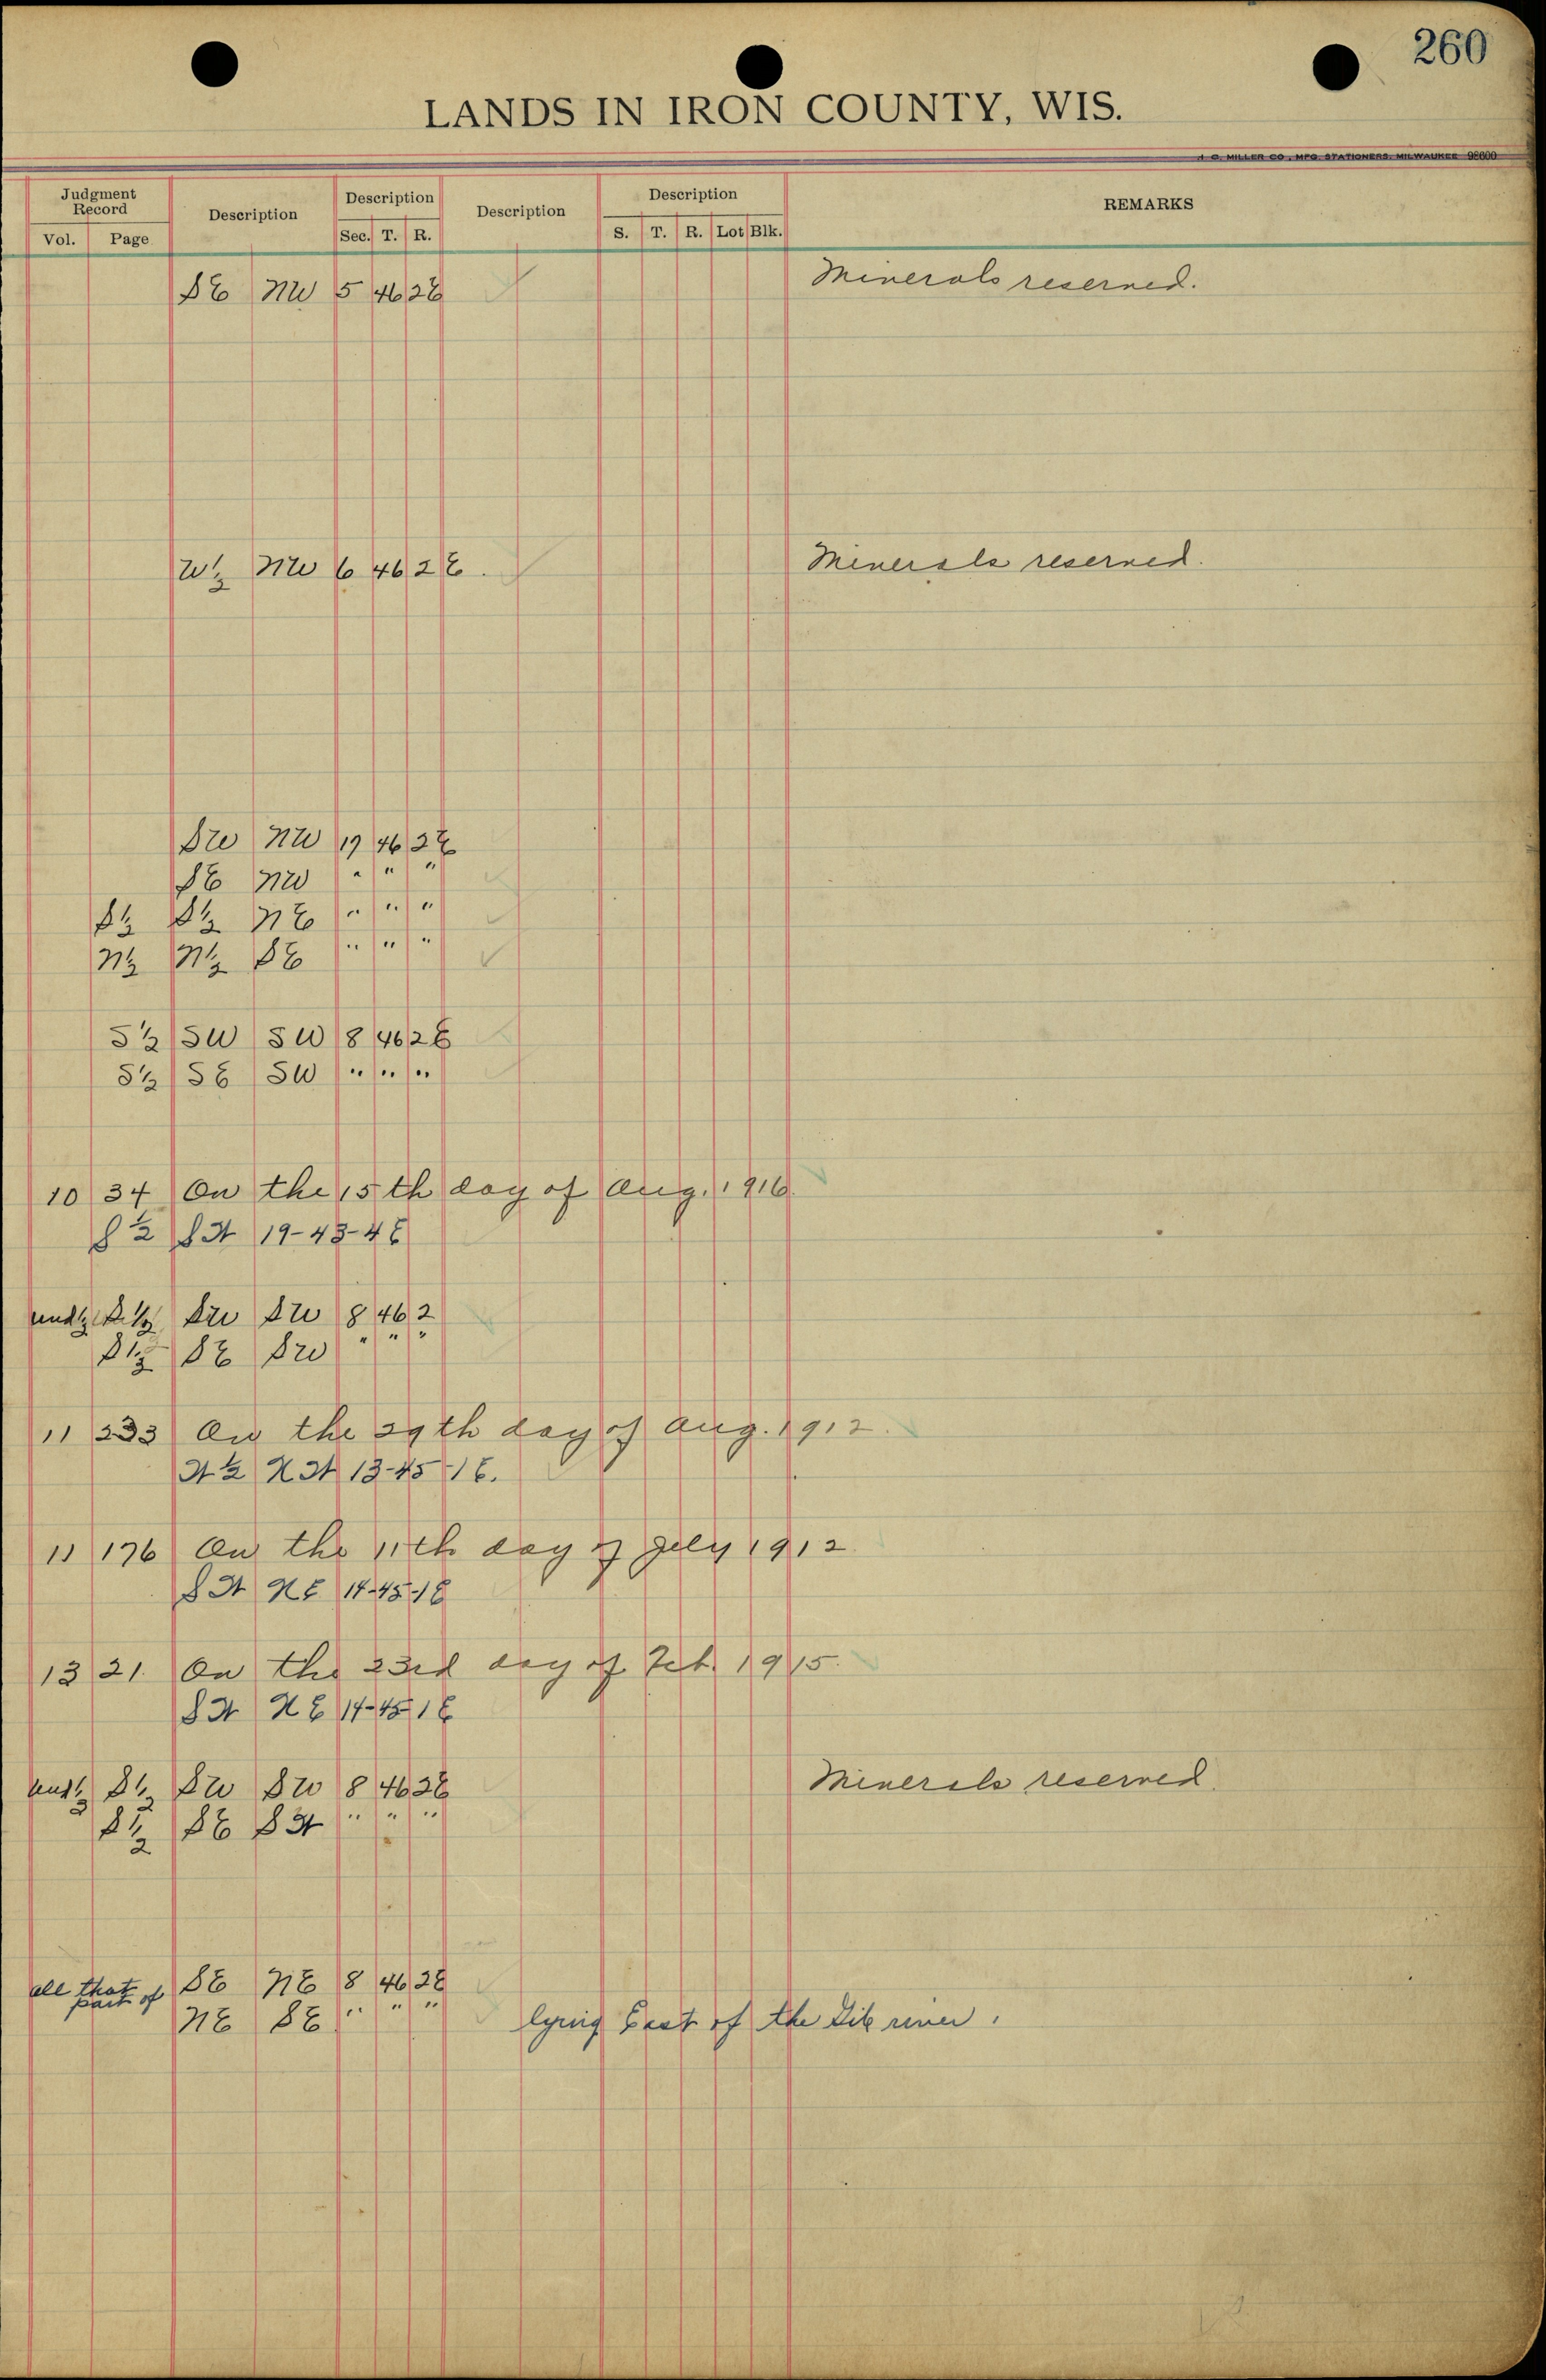 260
LANDS IN IRON COUNTY, WIS.
J. C. MILLER CO., MFG. STATIONERS, MILWAUKEE 98600
Judgment Record Description Description Description Description REMARKS
Vol. Page Sec. T. R. S. T. R. Lot Blk.
SE NW 5 46 2E Minerals reserved.
W½ NW 6 46 2E. Minerals reserved.
SW NW 17 46 2E
SE NW " " "
S½ S½ NE " " "
N½ N½ SE " " "
S½ SW SW 8 46 2E
S½ SE SW " " "
10 34 On the 15th day of Aug. 1916
S½ SW 19-43-4E
und ½ S½ SW SW 8 46 2
S½ SE SW " " "
11 233 On the 29th day of Aug. 1912.
W½ NW 13-45-1E.
11 176 On the 11th day of July 1912.
SW NE 14-45-1E
13 21. On the 23rd day of Feb. 1915.
SW NE 14-45-1E
und ½ S½ SW SW 8 46 2E Minerals reserved.
S½ SE SW " " "
all that part of SE NE 8 46 2E
NE SE " " " lying East of the river.